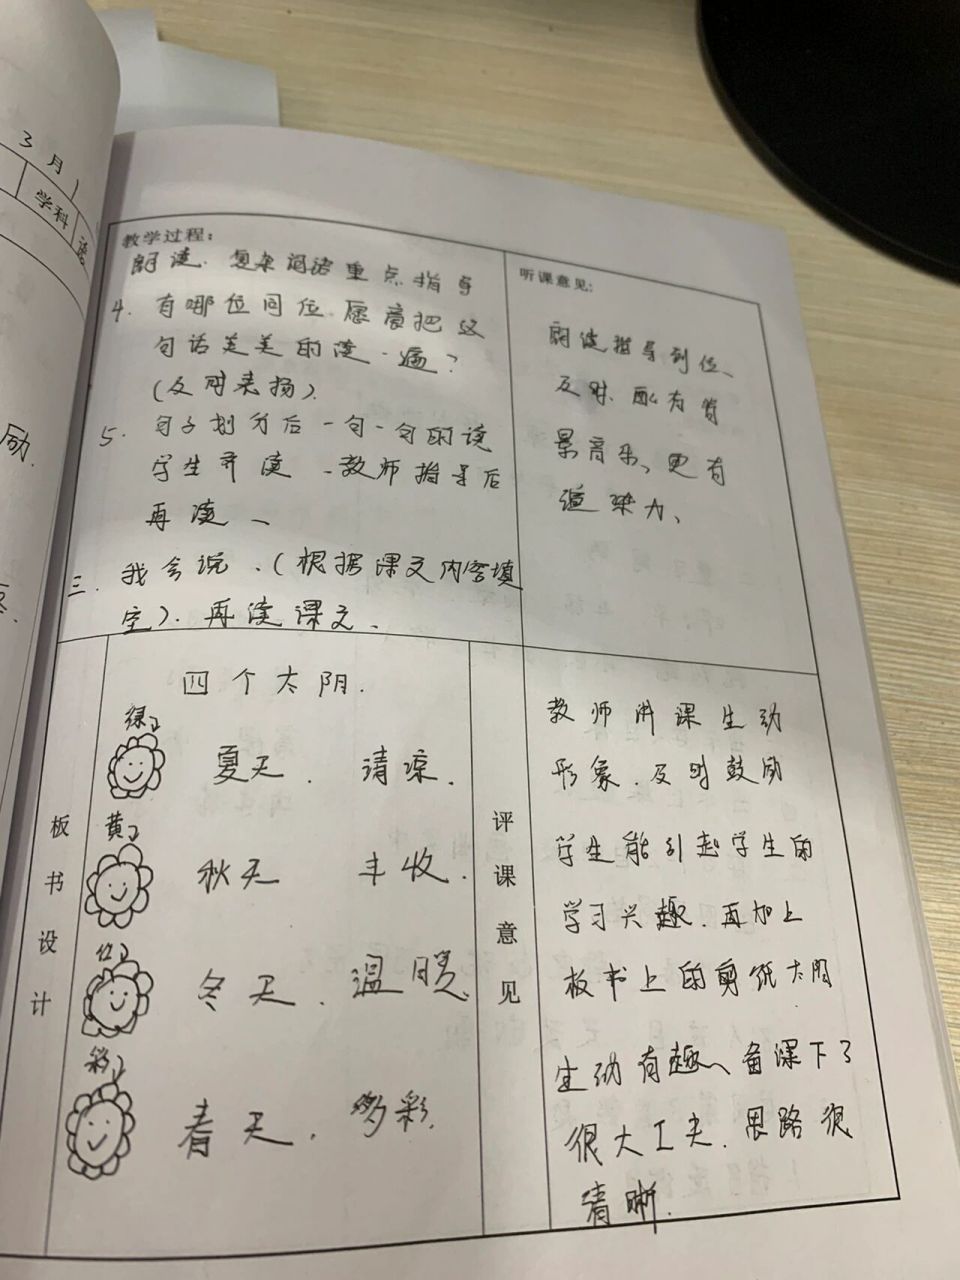 3 月 1
学科 语
励.
教学过程:
朗读. 复杂词语重点指导
4. 有哪位同位愿意把这
句话美美的读一遍?
(及时表扬).
5. 句子划分后一句一句的读
学生齐读、教师指导后
再读、
三. 我会说.(根据课文内容填
空). 再读课文.
听课意见:
朗读指导到位、
及时. 配有背
景音乐、更有
渲染力、
板书设计
四个太阳.
绿
夏天. 清凉.
黄
秋天 丰收.
红
冬天. 温暖.
彩
春天. 多彩.
评课意见
教师讲课生动
形象. 及时鼓励
学生能引起学生的
学习兴趣. 再加上
板书上的剪纸太阳
生动有趣、备课下了
很大工夫. 思路很
清晰.